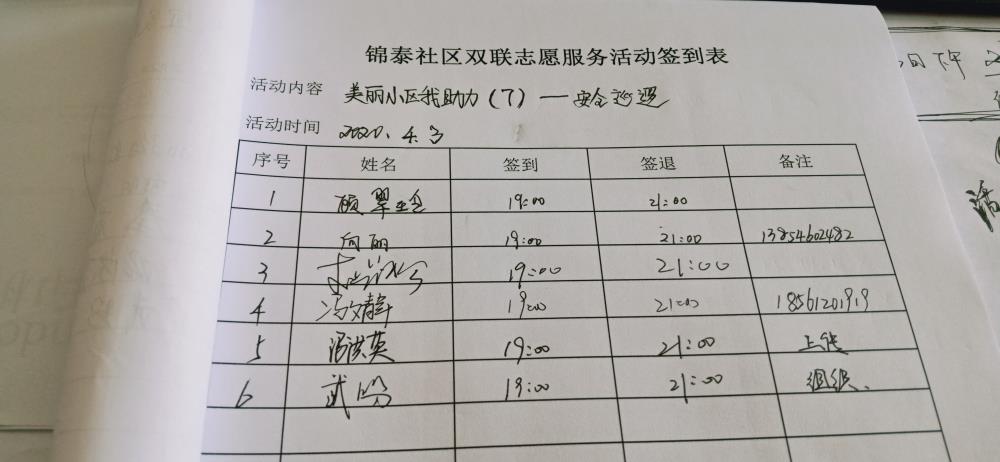 锦泰社区双联志愿服务活动签到表
活动内容 美丽小区我助力(7)一安全巡逻
活动时间 2020.4.3
序号 姓名 签到 签退 备注
1 顾翠 19:00 21:00
2 向丽 19:00 21:00 13854602482
3 19:00 21:00
4 冯文静 19:00 21:00 18561201919
5 洪英 19:00 21:00 上传
6 武 19:00 21:00 组织、
日下午